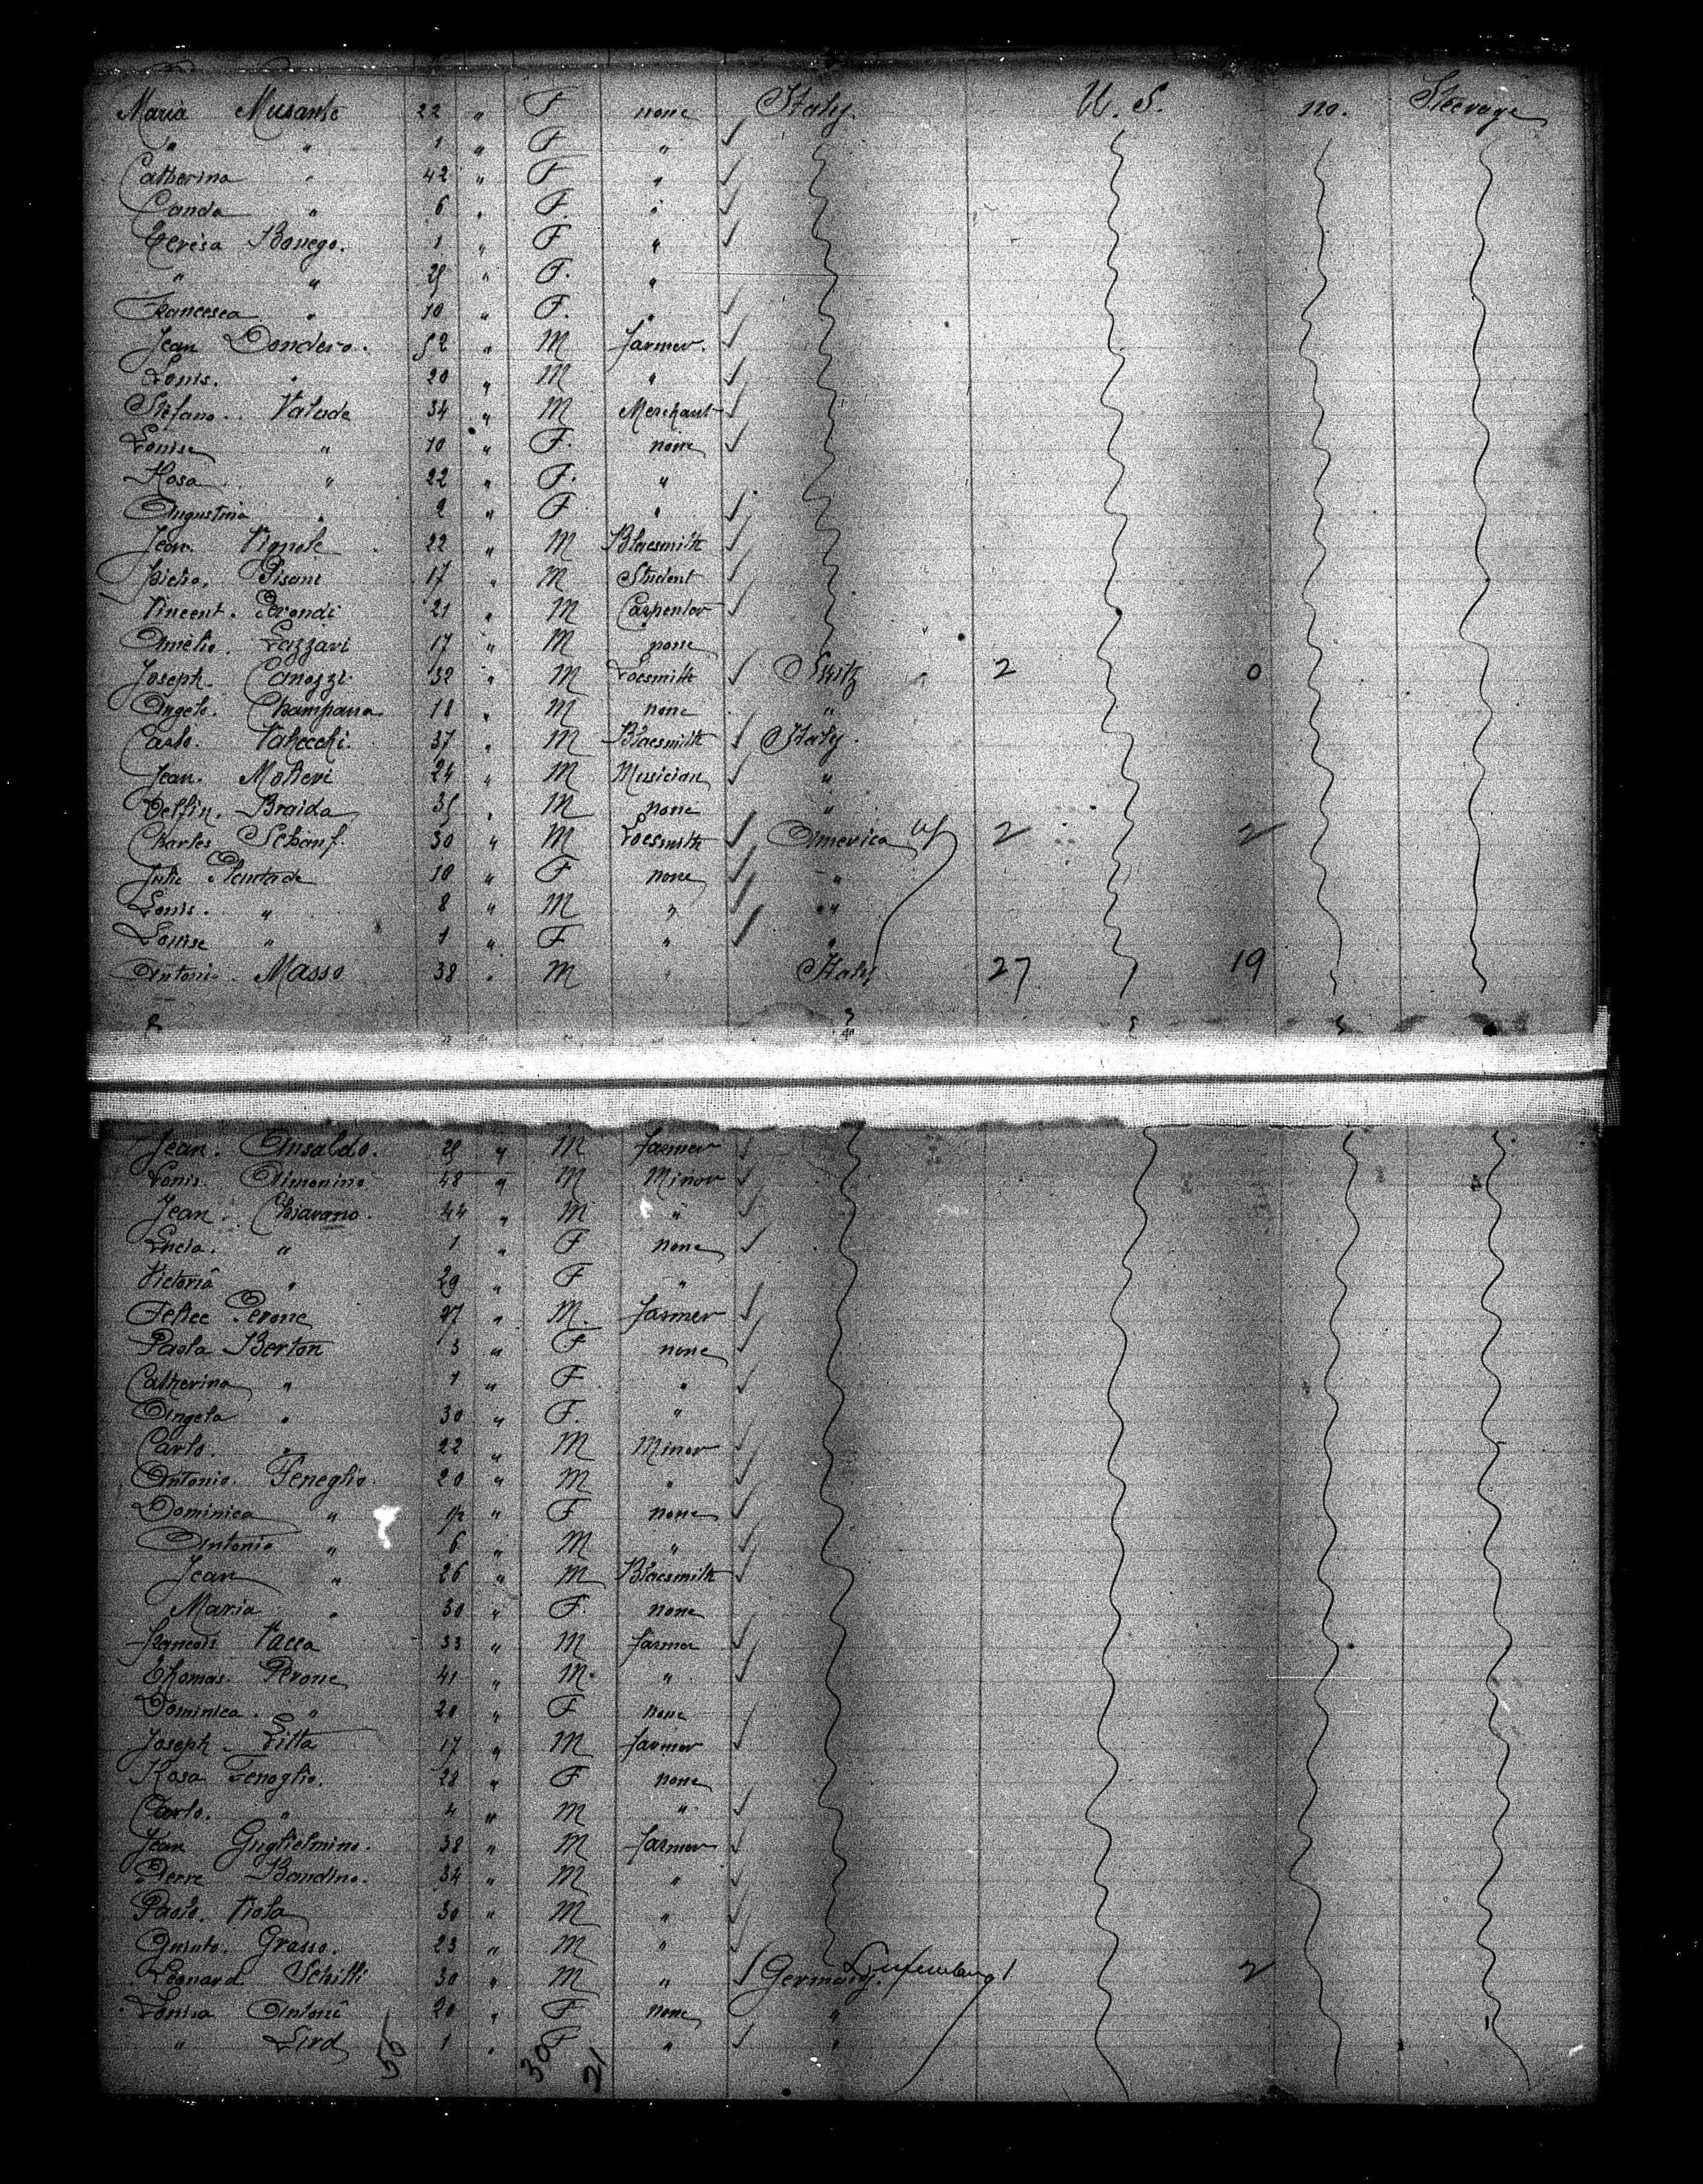 Maria Musante 22 " F none Italy. U. S. no. Steerage
" " 1 " F "
Catherina " 42 " F "
Canda " 6 " F. "
Teresa Bonego. 1 " F "
" " 25 " F. "
Francesca " 10 " F. "
Jean Dondero. 52 " M farmer.
Louis. " 20 " M "
Stefano. Valude 34 " M Merchant
Louise " 10 " F. none
Rosa " 22 " F. "
Augustina " 2 " F "
Jean. Vignole 22 " M Blacsmith
Pietro. Pisani 17 " M Student
Vincent. Perondi 21 " M Carpentor
Amelio. Lazzari 17 " M none
Joseph. Canozzi 32 " M Locsmith Switz 2 0
Angelo. Champana. 18 " M none "
Carlo. Vahecchi. 37 " M Blacsmith Italy.
Jean. Molteni 24 " M Musician "
Delfin. Braida 35 " M none "
Charles Schanf. 30 " M Locsmith America US 2 2
Julie Plentade 10 " F none "
Louis. " 8 " M " "
Louise " 1 " F " "
Antoni. Masso 38 " M " Italy 27 19
Jean. Ansaldo. 25 " M farmer
Louis. Aimonino 48 " M Minor
Jean. Chiavano. 44 " M "
Lucia. " 1 " F none
Victoria " 29 " F "
Felice Perone 27 " M. farmer
Paola Berton 3 " F none
Catherina " 1 " F "
Angela " 30 " F. "
Carlo. " 22 " M Minor
Antonio. Feneglio. 20 " M "
Dominica " 1/2 " F none
Antonio " 6 " M "
Jean " 26 " M Blacsmith
Maria " 30 " F. none
francois Vacca 33 " M farmer
Thomas. Perone 41 " M. "
Dominica. " 20 " F none
Joseph. Litta 17 " M farmer
Rosa Fenoglio. 28 " F none
Carlo. " 4 " M "
Jean Guglielmino. 38 " M farmer
Pierre Baudino. 34 " M "
Paolo. Viola 30 " M "
Quinto. Grasso. 23 " M "
Leonard Schilli 30 " M " Germany. Luxemburg 1 2
Louisa Antoni 20 " F none "
" Lird 1 " F " "
56 30 21